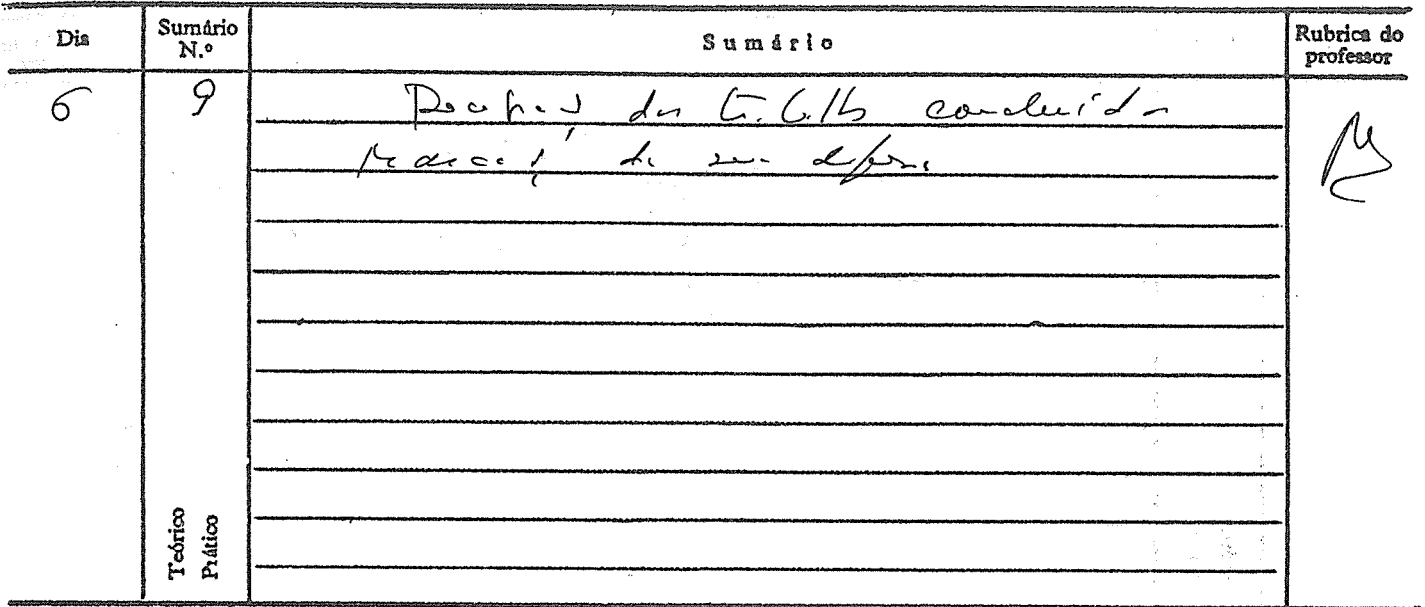 Dia
Sumário N.º
Sumário
Rubrica do professor
6
9
Recepção dos trabalhos concluídos
Marcação da sua defesa
Teórico
Prático